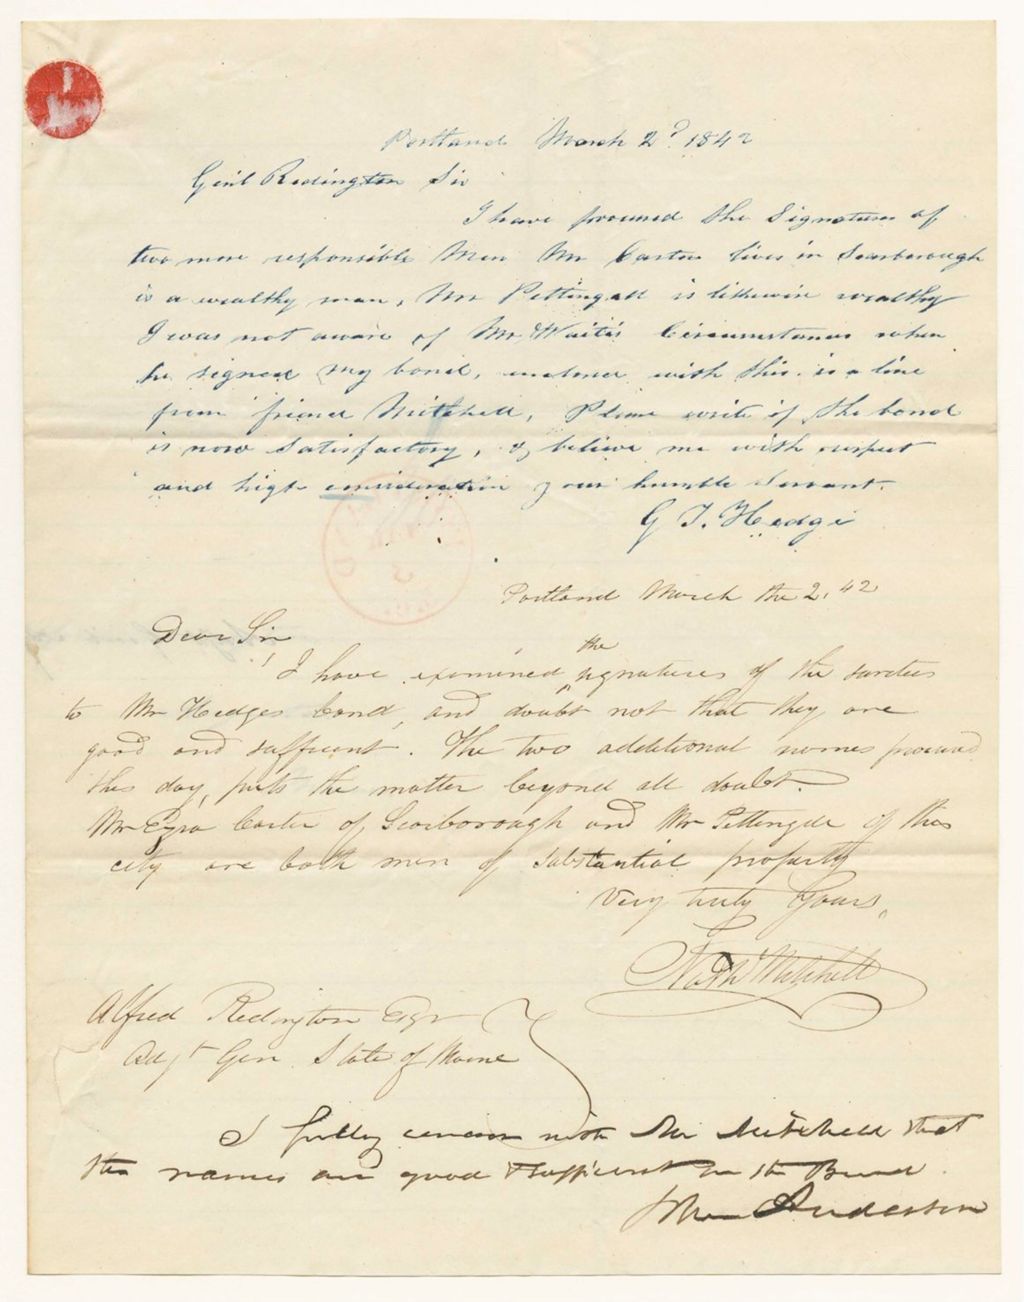 Portland March 2d 1842
Genl Redington Sir
I have procured the Signatures of
two more responsible Men Mr Carter lives in Scarborough
is a wealthy man, Mr Pettingall is likewise wealthy
I was not aware of Mr Waite's Circumstances when
he signed my bond, enclosed with this is a line
from friend Mitchell, Please write if the bond
is now satisfactory, & believe me with respect
and high consideration your humble Servant.
G T. Hedge
Portland March the 2, 42
Dear Sir
I have examined the signatures of the sureties
to Mr Hedges bond, and doubt not that they are
good and sufficient. The two additional names procured
this day, puts the matter beyond all doubt.
Mr Ezra Carter of Scarborough and Mr Pettengill of this
city are both men of substantial property
Very truly Yours,
Nathl Mitchell
Alfred Redington Esqr
Adjt Gen State of Maine
I fully concur with Mr Mitchell that
the names are good & sufficient in the Bond.
John Anderson